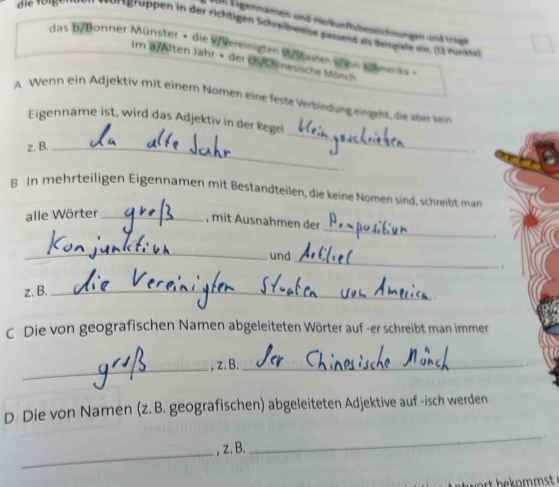 von Eigennamen und Herkunftsbezeichnungen und trage
die folgenden Wortgruppen in der richtigen Schreibweise passend als Beispiele ein. (12 Punkte)
das b/Bonner Münster + die v/Vereinigten st/Staaten v/von a/Amerika +
im a/Alten Jahr + der ch/Chinesische Mönch
A Wenn ein Adjektiv mit einem Nomen eine feste Verbindung eingeht, die aber kein
Eigenname ist, wird das Adjektiv in der Regel klein geschrieben .
z. B. da alte Jahr .
B In mehrteiligen Eigennamen mit Bestandteilen, die keine Nomen sind, schreibt man
alle Wörter groß , mit Ausnahmen der Preposition ,
Konjunktion und Artikel .
z. B. die Vereinigten Staaten von America.
C Die von geografischen Namen abgeleiteten Wörter auf -er schreibt man immer
groß , z. B. der Chinesische Mönch .
D Die von Namen (z. B. geografischen) abgeleiteten Adjektive auf -isch werden
, z. B. .
bekommst